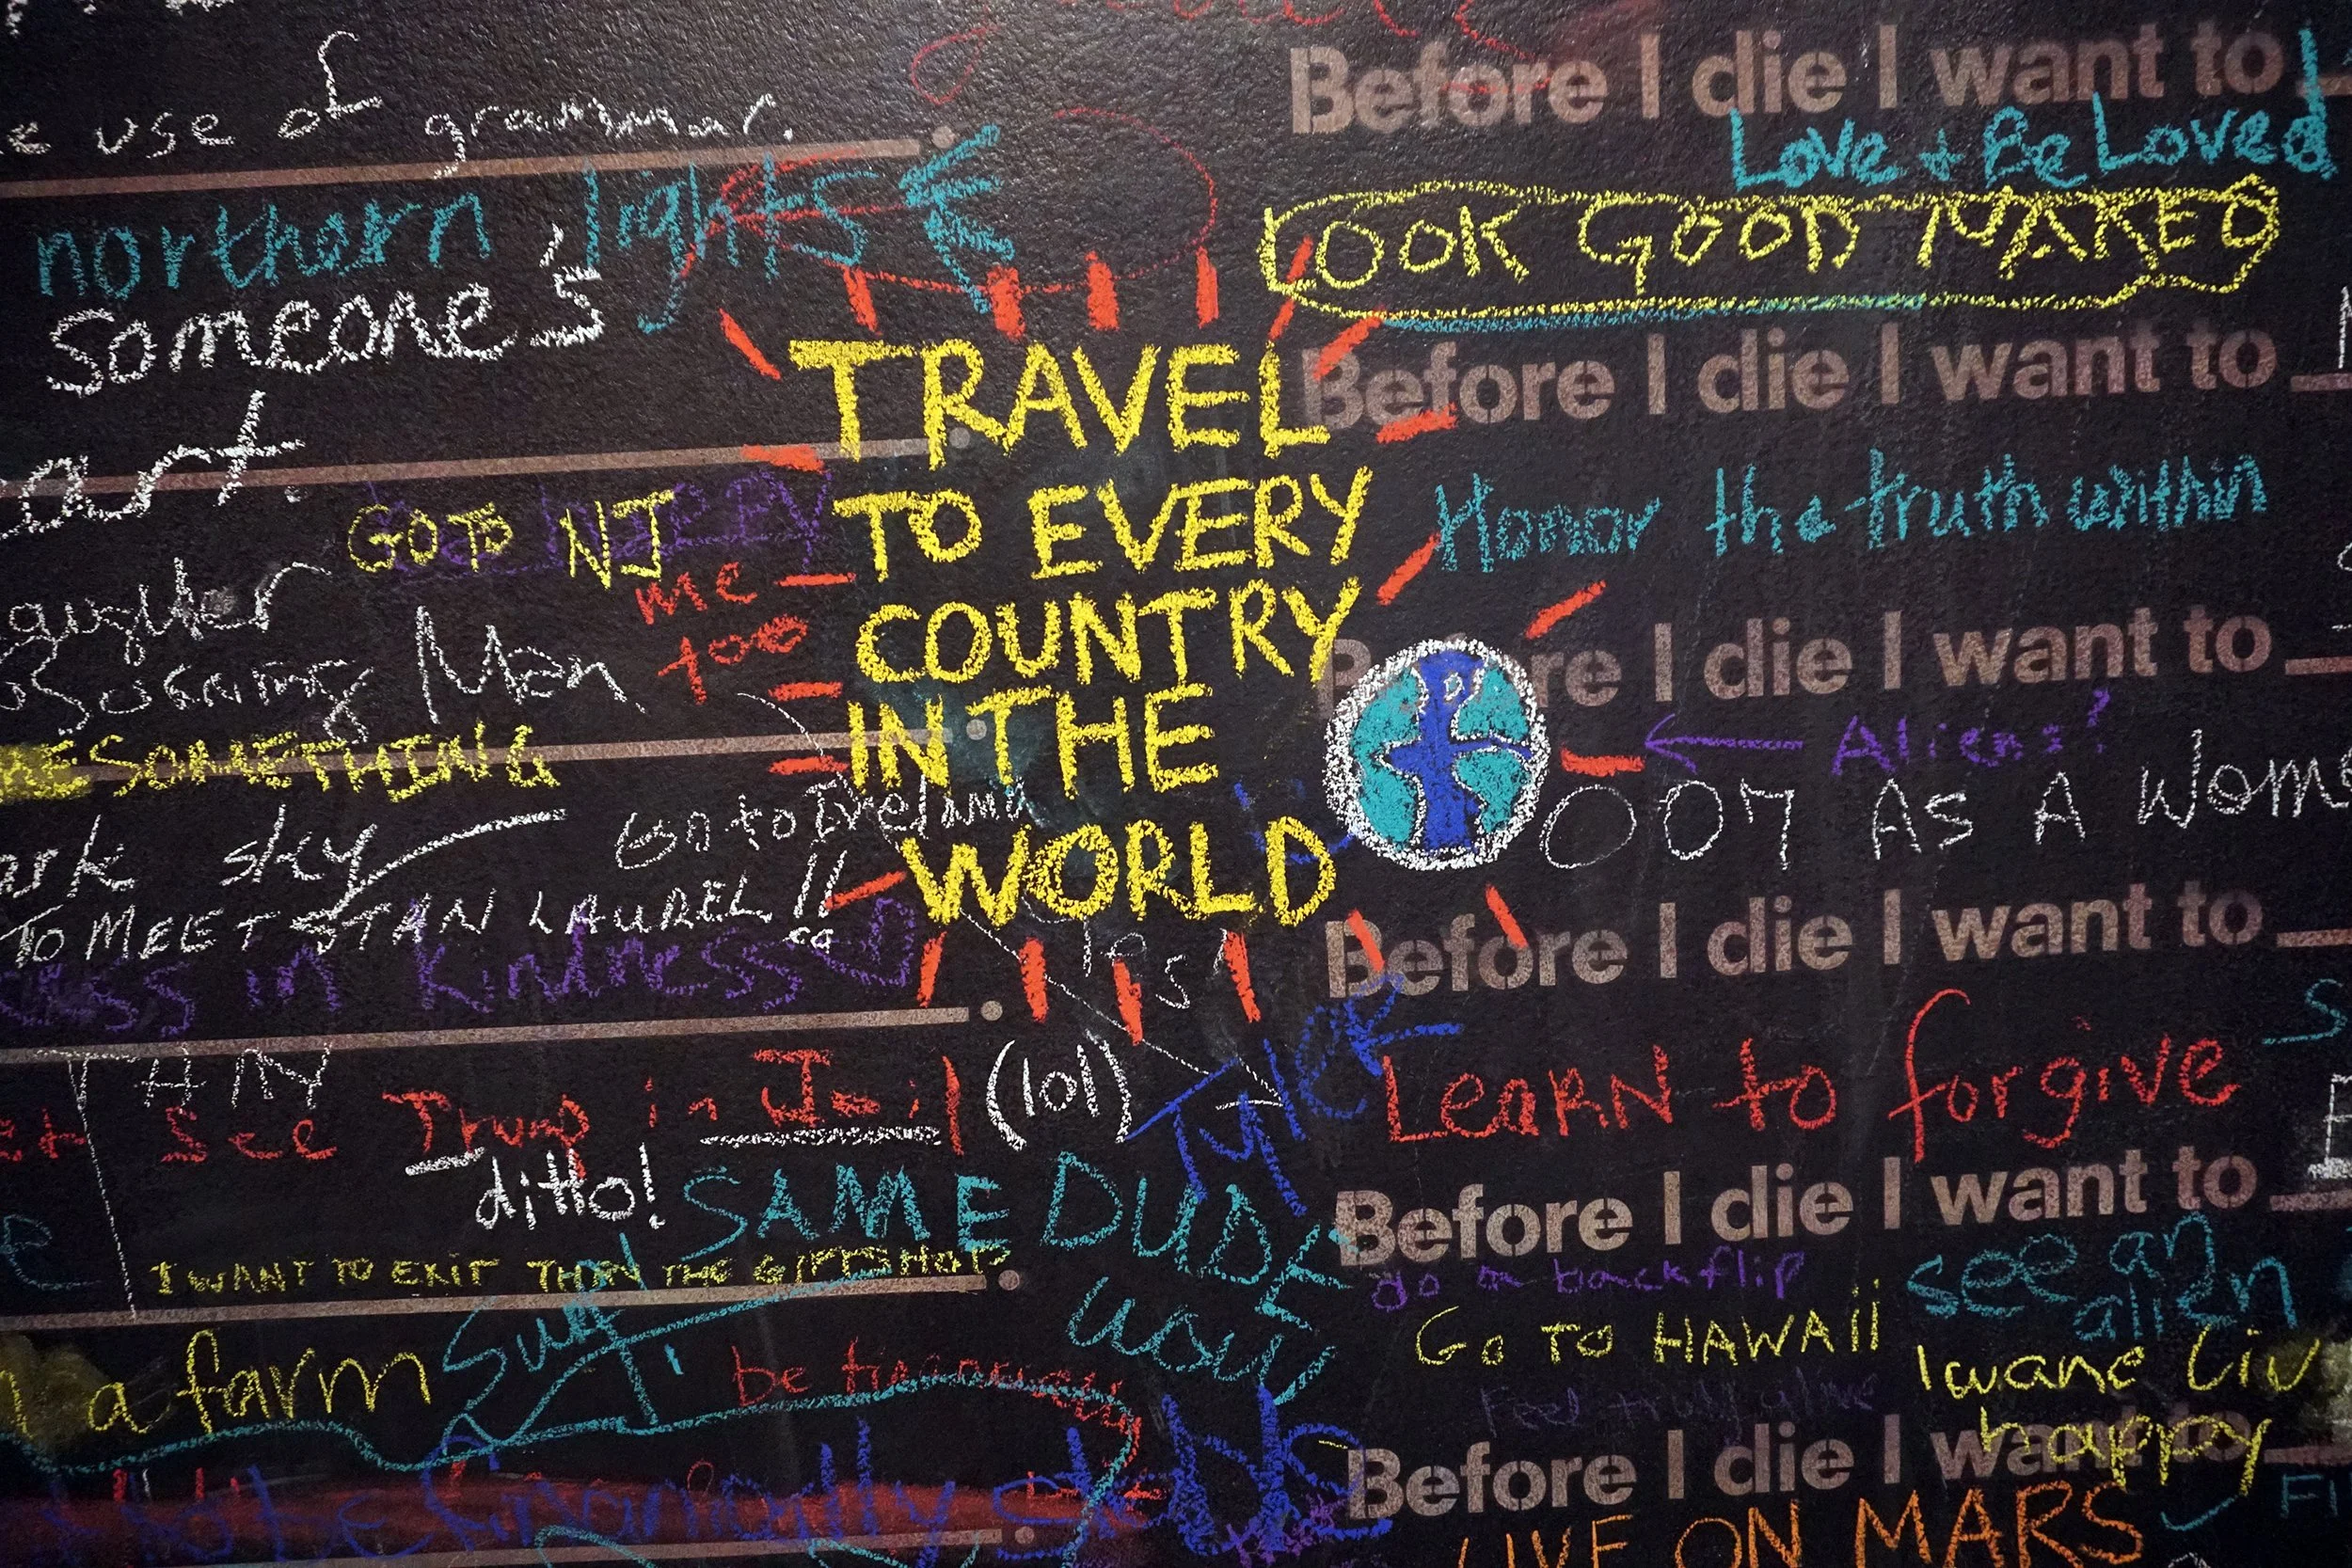 use of grammar.
northern lights
someone's
art.
GO TO NJ
me
too
Man
SOMETHING
sky
Go to Ireland
TO MEET STAN LAUREL!!
in kindness
TRAVEL
TO EVERY
COUNTRY
IN THE
WORLD
see Trump in Jail (lol)
ditto!
SAME DUDE
I WANT TO EXIT THRU THE GIFTSHOP
a farm
be financially
Before I die I want to
Love + Be Loved
LOOK GOOD NAKED
Before I die I want to
Honor the truth within
Before I die I want to
Aliens!
007 AS A
Before I die I want to
LeaRN to forgive
Before I die I want to
do a backflip
see an
alien
GO TO HAWAii
Feel truly alive
I wane Liv
happy
Before I die I want to
LIVE ON MARS